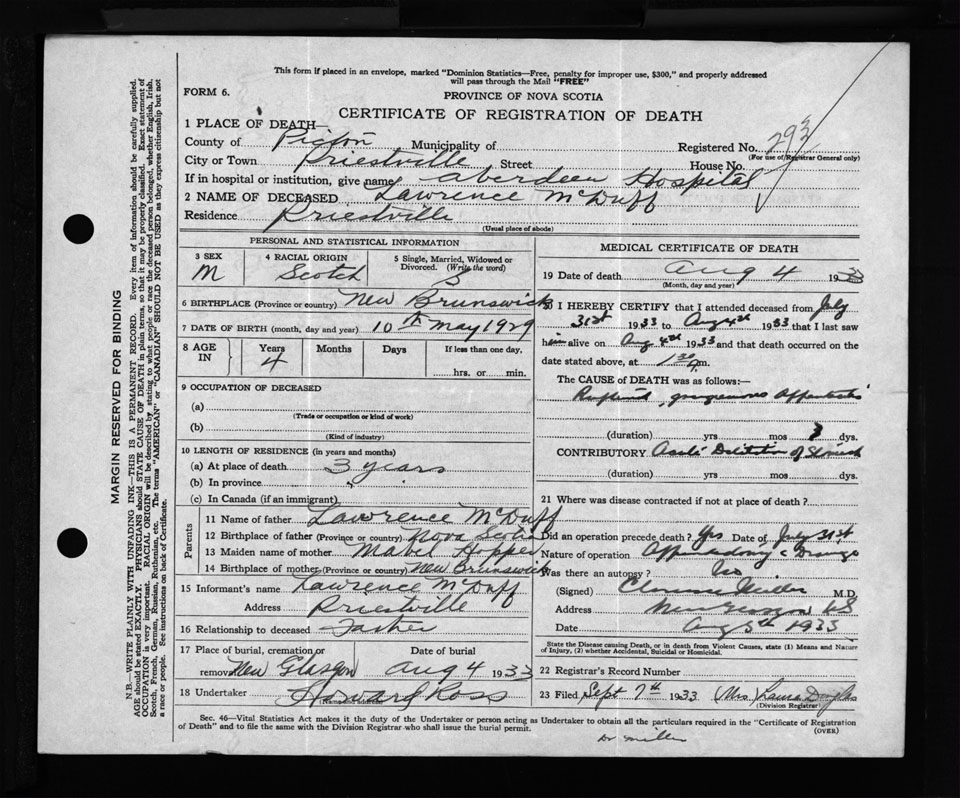 This form if placed in an envelope, marked "Dominion Statistics—Free, penalty for improper use, $300," and properly addressed
will pass through the Mail "FREE"
FORM 6.
PROVINCE OF NOVA SCOTIA
CERTIFICATE OF REGISTRATION OF DEATH
1 PLACE OF DEATH—
County of Pictou Municipality of Registered No. 293
(For use of Registrar General only)
City or Town Priestville Street House No.
If in hospital or institution, give name Aberdeen Hospital
2 NAME OF DECEASED Lawrence McDuff
Residence Priestville
(Usual place of abode)
PERSONAL AND STATISTICAL INFORMATION
3 SEX 4 RACIAL ORIGIN 5 Single, Married, Widowed or
Divorced. (Write the word)
M Scotch S
6 BIRTHPLACE (Province or country) New Brunswick
7 DATE OF BIRTH (month, day and year) 10th May 1929
8 AGE IN Years Months Days If less than one day,
4 hrs. or min.
9 OCCUPATION OF DECEASED
(a)
(Trade or occupation or kind of work)
(b)
(Kind of industry)
10 LENGTH OF RESIDENCE (in years and months)
(a) At place of death 3 years
(b) In province "
(c) In Canada (if an immigrant)
Parents
11 Name of father Lawrence McDuff
12 Birthplace of father (Province or country) Nova Scotia
13 Maiden name of mother Mabel Hopper
14 Birthplace of mother (Province or country) New Brunswick
15 Informant's name Lawrence McDuff
Address Priestville
16 Relationship to deceased Father
17 Place of burial, cremation or Date of burial
removal New Glasgow Aug 4 1933
18 Undertaker Howard Ross
MEDICAL CERTIFICATE OF DEATH
19 Date of death Aug 4 1933
(Month, day and year)
20 I HEREBY CERTIFY that I attended deceased from July
31st 1933 to Aug 4th 1933 that I last saw
him alive on Aug 4th 1933 and that death occurred on the
date stated above, at 1 30 m.
The CAUSE of DEATH was as follows:—
Ruptured, gangrenous Appendicitis
(duration) yrs mos 3 dys.
CONTRIBUTORY Acute Dilitation of Stomach
(duration) yrs. mos. dys.
21 Where was disease contracted if not at place of death?
Did an operation precede death? Yes Date of July 31st
Nature of operation
Was there an autopsy? No
(Signed) Clarence Miller M.D.
Address New Glasgow NS
Date Aug 5th 1933
State the Disease causing Death, or in death from Violent Causes, state (1) Means and Nature
of Injury, (2) whether Accidental, Suicidal or Homicidal.
22 Registrar's Record Number
23 Filed, Sept 7th 1933 (Mrs) Laura Douglas
(Division Registrar)
Sec. 46—Vital Statistics Act makes it the duty of the Undertaker or person acting as Undertaker to obtain all the particulars required in the "Certificate of Registration
of Death" and to file the same with the Division Registrar who shall issue the burial permit.
(OVER)
Dr Miller
MARGIN RESERVED FOR BINDING
N.B.—WRITE PLAINLY WITH UNFADING INK—THIS IS A PERMANENT RECORD. Every item of information should be carefully supplied.
AGE should be stated EXACTLY. PHYSICIANS should STATE CAUSE OF DEATH in plain terms, so that it may be properly classified. Exact statement of
OCCUPATION is very important. RACIAL ORIGIN will be described by stating to what people or race the deceased person belonged, whether English, Irish,
Scotch, French, German, Russian, Ruthenian, etc. The terms "AMERICAN" or "CANADIAN" SHOULD NOT BE USED as they express citizenship but not
a race or people. See instructions on back of Certificate.